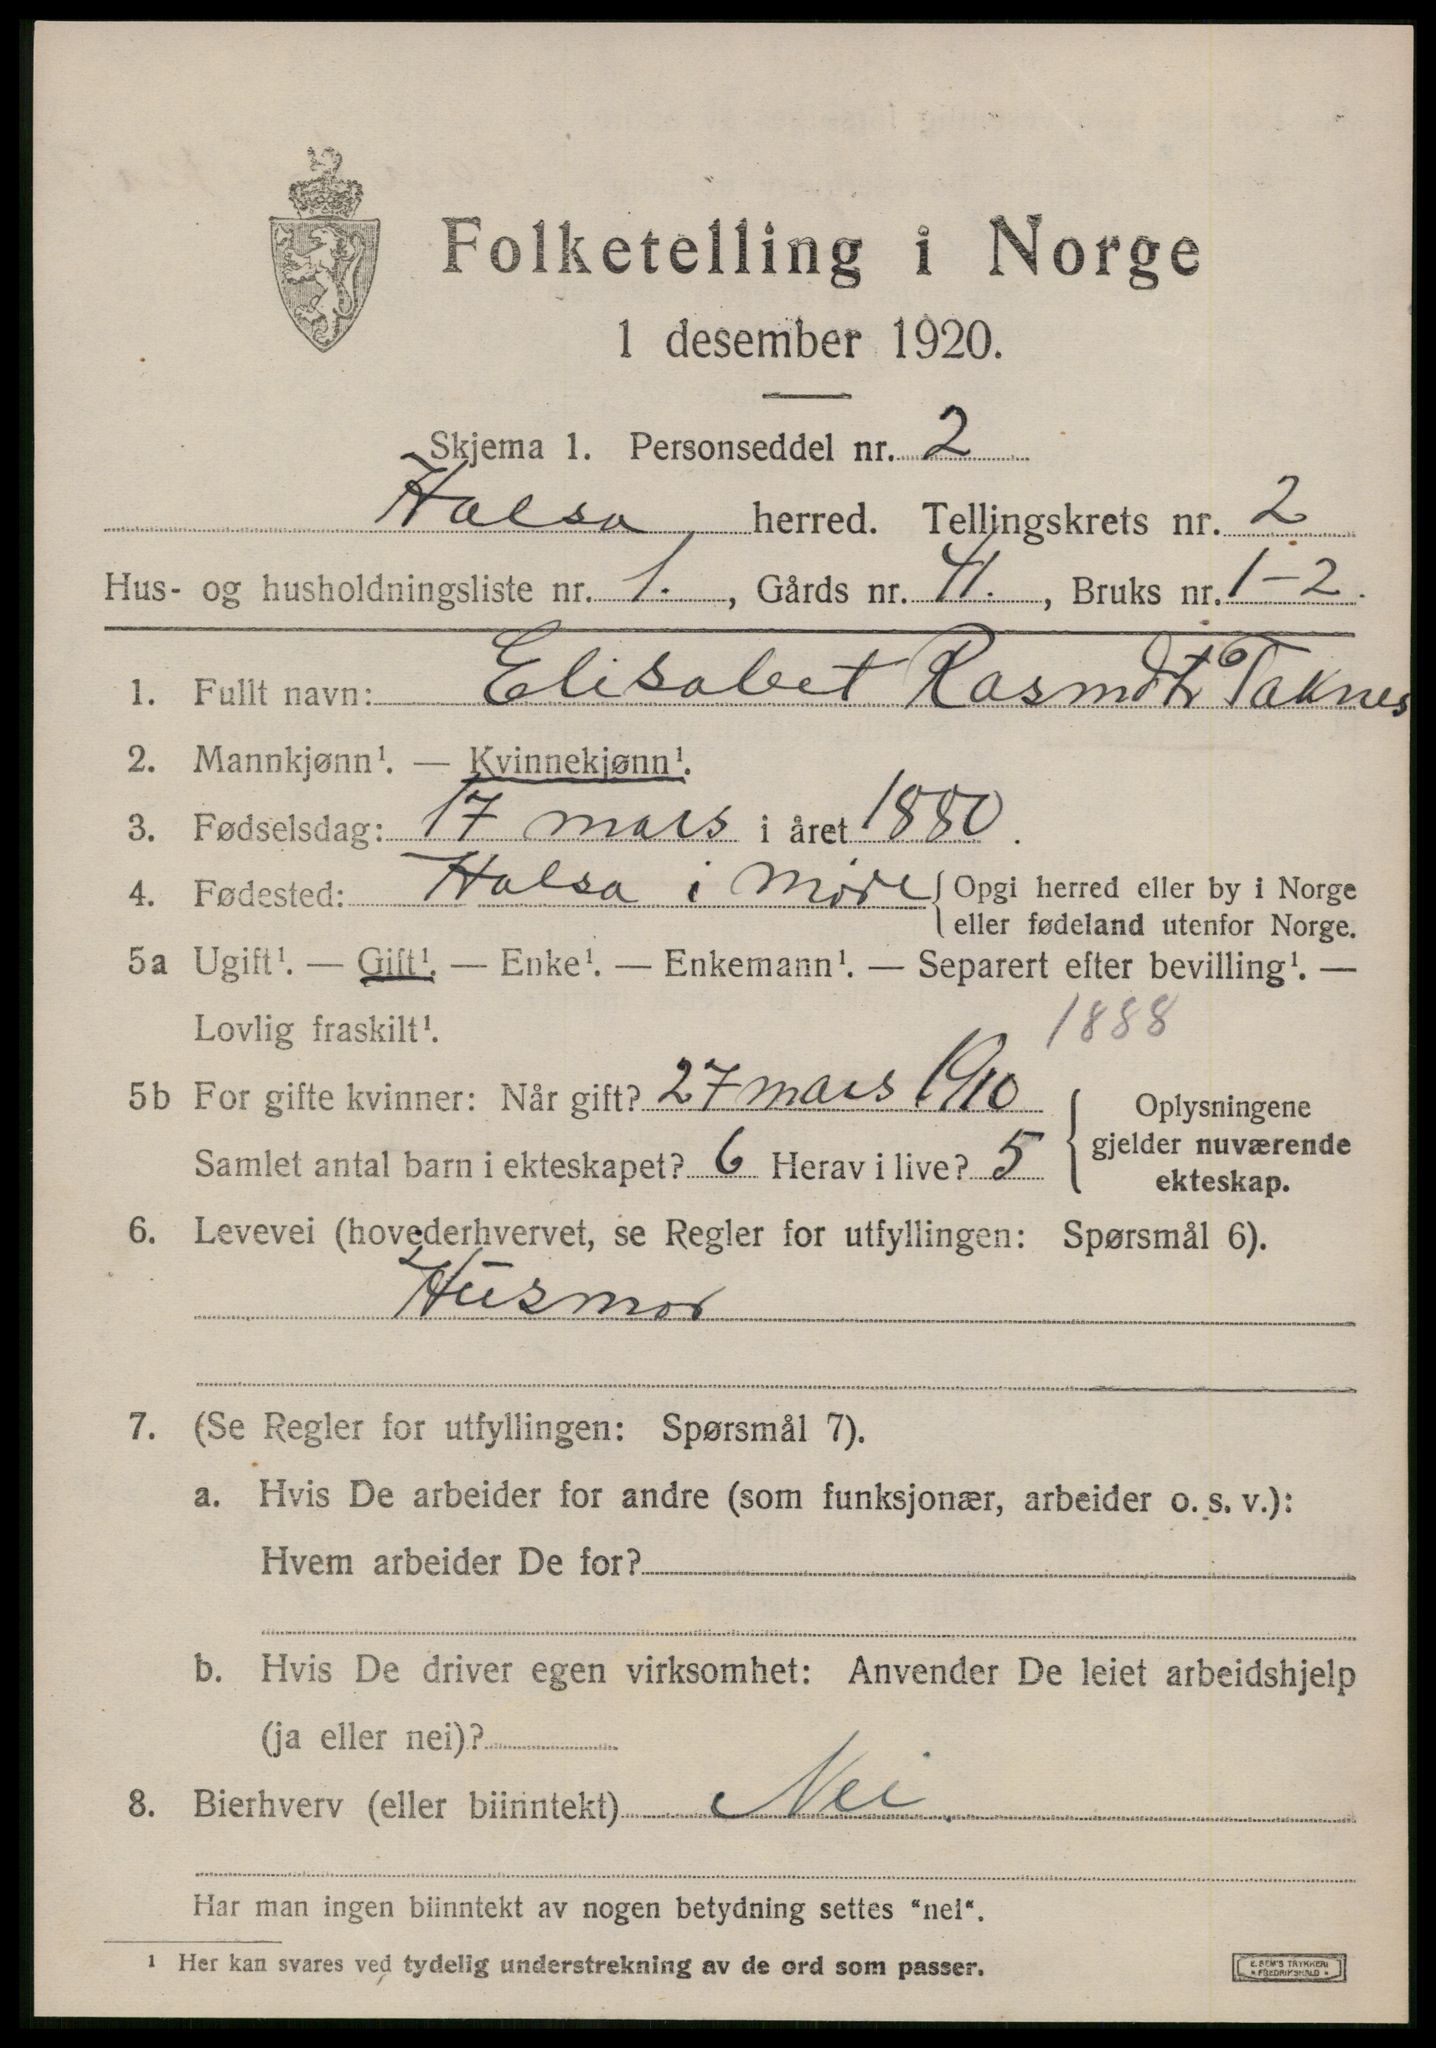 Folketelling i Norge
1 desember 1920.
Skjema 1. Personseddel nr. 2
Halsa herred. Tellingskrets nr. 2
Hus- og husholdningsliste nr. 1. , Gårds nr. 41. , Bruks nr. 1-2.
1. Fullt navn: Elisabet Rasmdtr Taknes
2. Mannkjønn¹. — Kvinnekjønn¹.
3. Fødselsdag: 17 mars i året 1880.
4. Fødested: Halsa i Møre { Opgi herred eller by i Norge
eller fødeland utenfor Norge.
5a Ugift¹. — Gift¹. — Enke¹. — Enkemann¹. — Separert efter bevilling¹. —
Lovlig fraskilt¹.
1888
5b For gifte kvinner: Når gift? 27 mars 1910
Samlet antal barn i ekteskapet? 6 Herav i live? 5
Oplysningene
gjelder nuværende
ekteskap.
6. Levevei (hovederhvervet, se Regler for utfyllingen: Spørsmål 6).
Husmor
7. (Se Regler for utfyllingen: Spørsmål 7).
a. Hvis De arbeider for andre (som funksjonær, arbeider o. s. v.):
Hvem arbeider De for?
b. Hvis De driver egen virksomhet: Anvender De leiet arbeidshjelp
(ja eller nei)?
8. Bierhverv (eller biinntekt) Nei
Har man ingen biinntekt av nogen betydning settes "nei".
¹ Her kan svares ved tydelig understrekning av de ord som passer.
E. SEM'S TRYKKERI
FREDRIKSHALD